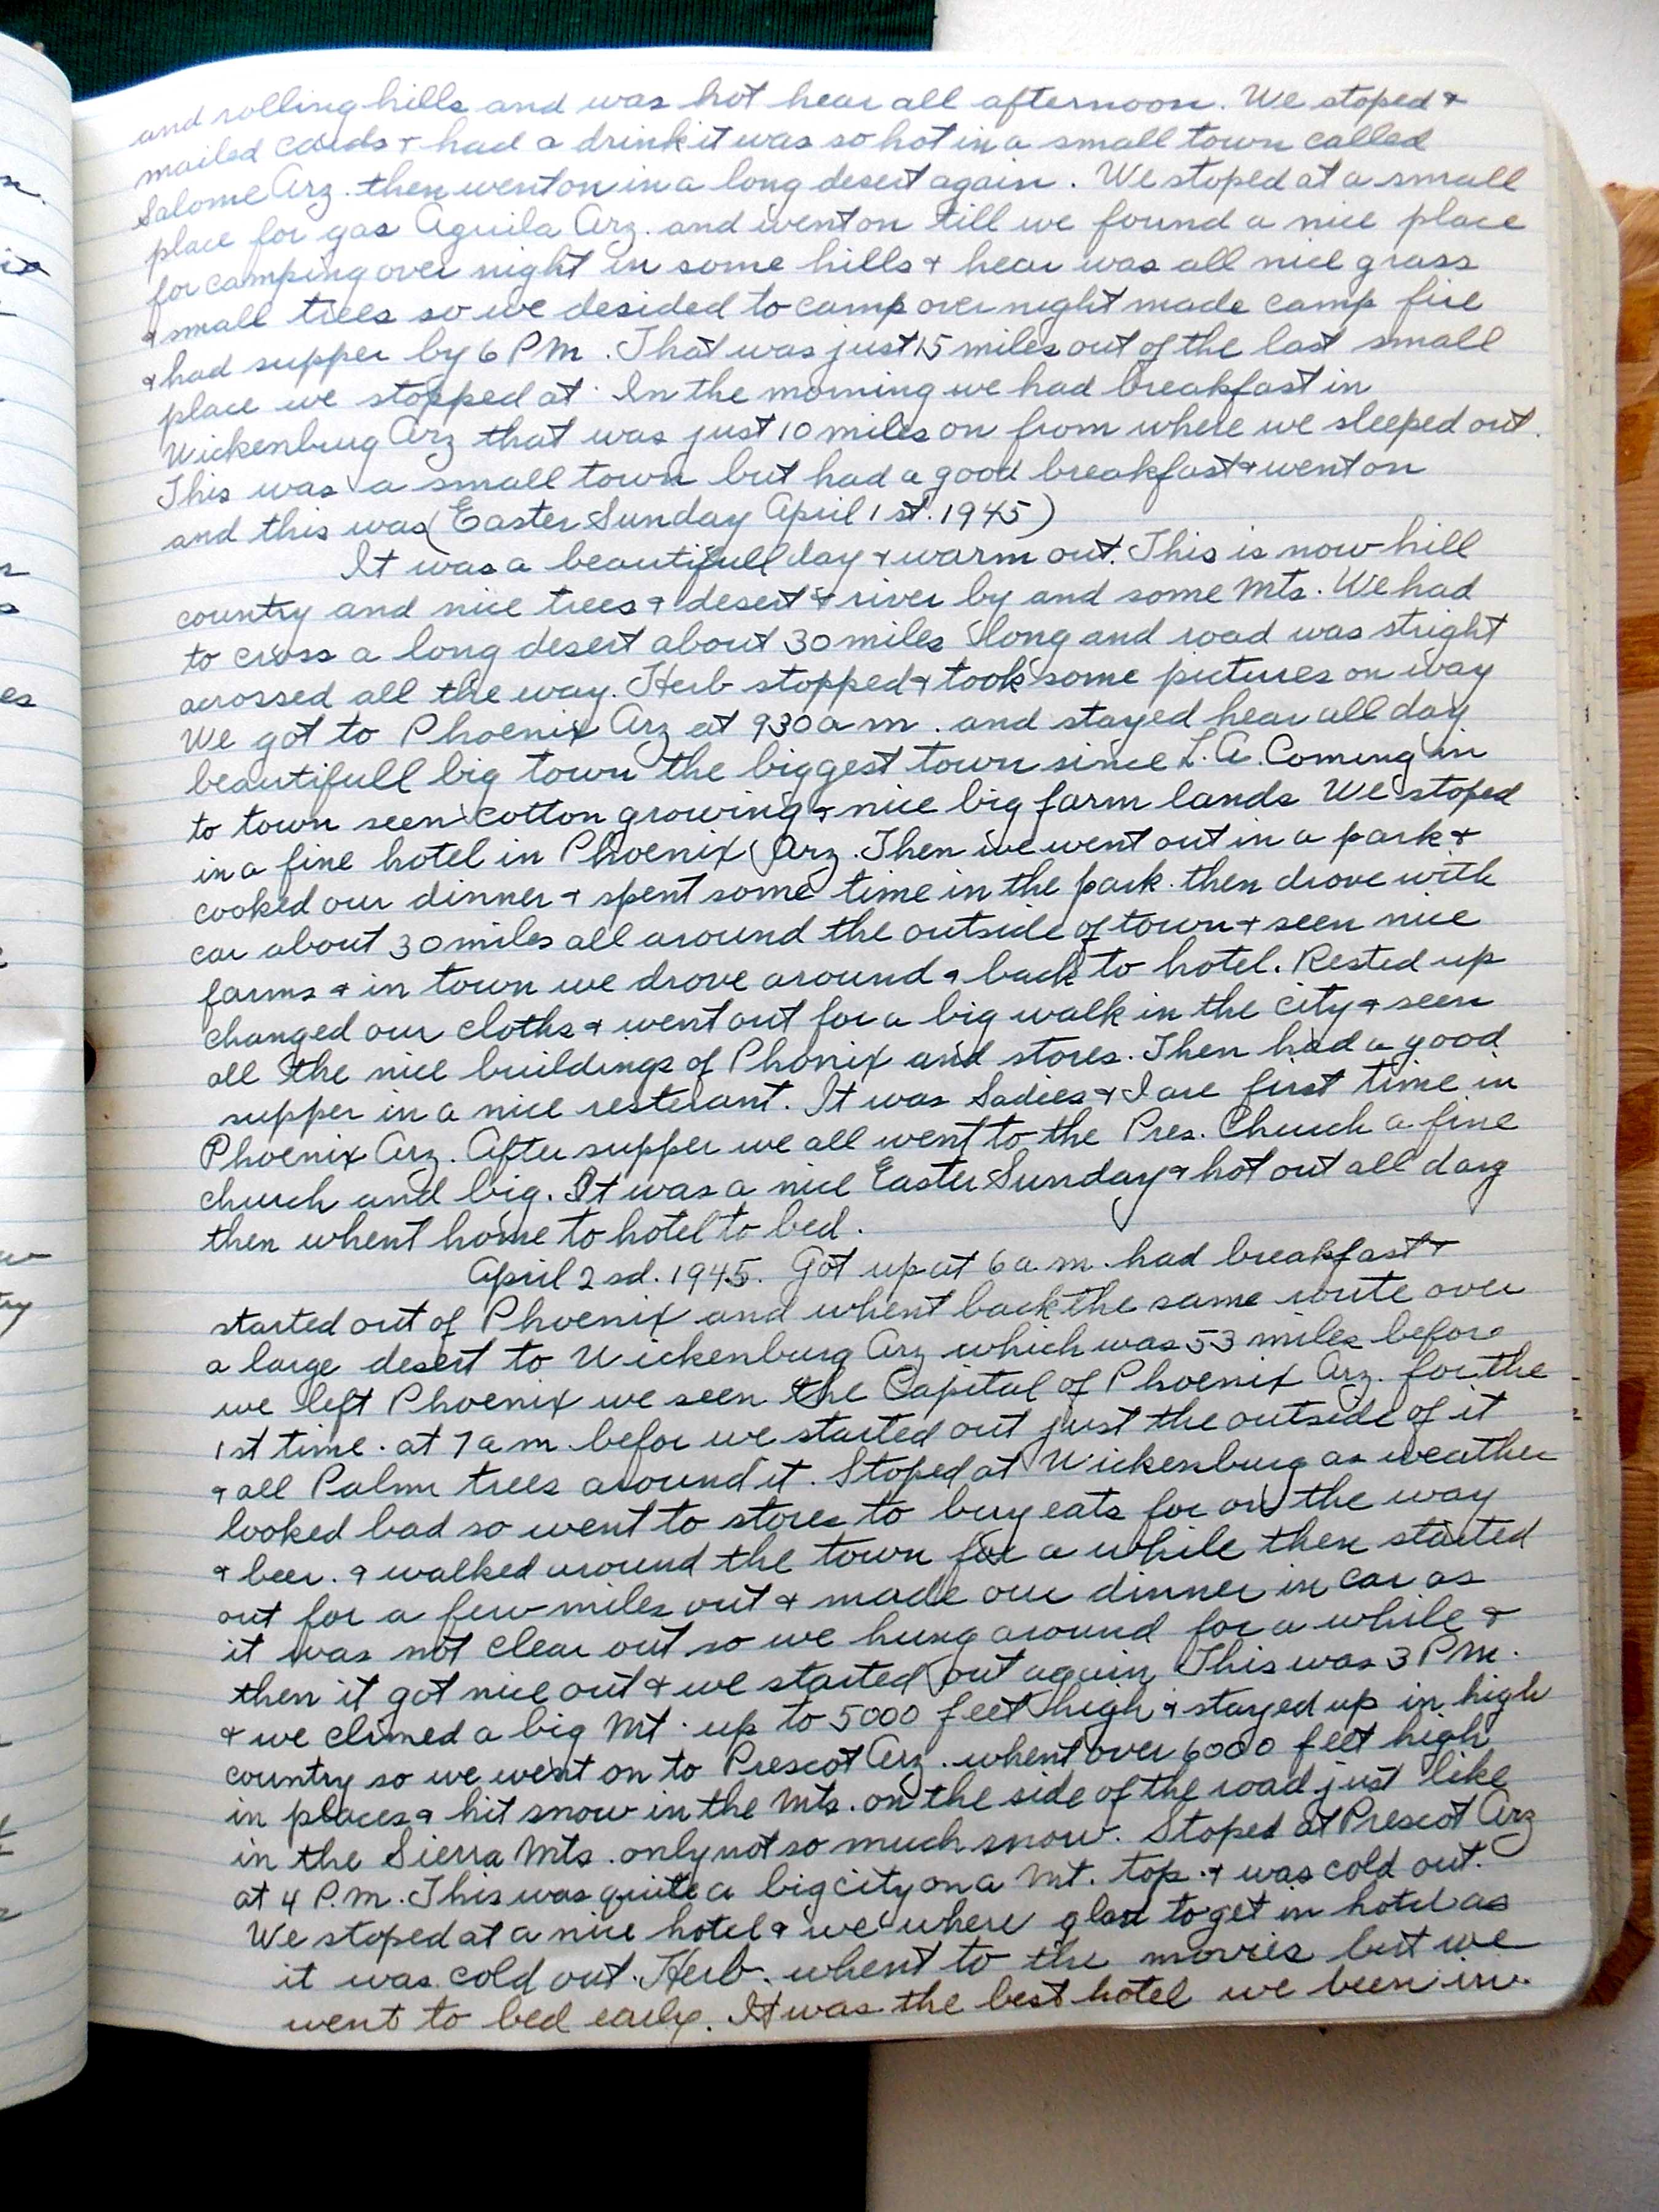 and rolling hills and was hot hear all afternoon. We stoped &
mailed cards & had a drink it was so hot in a small town called
Salome Arz. then went on in a long desert again. We stoped at a small
place for gas Aguila Arz. and went on till we found a nice place
for camping over night in some hills & hear was all nice grass
& small trees so we desided to camp over night made camp fire
& had supper by 6 P m. That was just 15 miles out of the last small
place we stopped at. In the morning we had breakfast in
Wickenburg Arz that was just 10 miles on from where we sleeped out.
This was a small town but had a good breakfast & went on
and this was (Easter Sunday April 1 st. 1945)
It was a beautifull day & warm out. This is now hill
country and nice trees & desert & river by and some Mts. We had
to cross a long desert about 30 miles long and road was stright
acrossed all the way. Herb stopped & took some pictures on way
We got to Phoenix Arz at 930 a m. and stayed hear all day
beautifull big town the biggest town since L.A. Coming in
to town seen cotton growing & nice big farm lands We stoped
in a fine hotel in Phoenix Arz. Then we went out in a park &
cooked our dinner & spent some time in the park. then drove with
car about 30 miles all around the outside of town & seen nice
farms & in town we drove around & back to hotel. Rested up
changed our cloths & went out for a big walk in the city & seen
all the nice buildings of Phonix and stores. Then had a good
supper in a nice resterant. It was Sadies & I are first time in
Phoenix Arz. After supper we all went to the Pres. Church a fine
church and big. It was a nice Easter Sunday & hot out all day
then whent home to hotel to bed.
April 2 sd. 1945. Got up at 6 a.m. had breakfast &
started out of Phoenix and whent back the same route over
a large desert to Wickenburg Arz which was 53 miles before
we left Phoenix we seen the Capital of Phoenix Arz. for the
1st time. at 7 a m. befor we started out just the outside of it
& all Palm trees around it. Stoped at Wickenburg as weather
looked bad so went to stores to buy eats for on the way
& beer. & walked around the town for a while then started
out for a few miles out & made our dinner in car as
it was not clear out so we hung around for a while &
then it got nice out & we started out again This was 3 P m.
& we climed a big Mt. up to 5000 feet high & stayed up in high
country so we went on to Prescot Arz. whent over 6000 feet high
in places & hit snow in the Mts. on the side of the road just like
in the Sierra Mts. only not so much snow. Stoped at Prescot Arz
at 4 P.m. This was quite a big city on a Mt. top. & was cold out.
We stoped at a nice hotel & we where glad to get in hotel as
it was cold out. Herb. whent to the movies but we
went to bed early. It was the best hotel we been in.